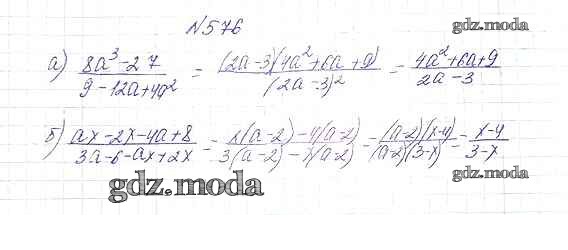 №576
gdz.moda
а) (8a³-27)/(9-12a+4a²) = ((2a-3)(4a²+6a+9))/((2a-3)²) = (4a²+6a+9)/(2a-3)
б) (ax-2x-4a+8)/(3a-6-ax+2x) = (x(a-2)-4(a-2))/(3(a-2)-x(a-2)) = ((a-2)(x-4))/((a-2)(3-x)) = (x-4)/(3-x)
gdz.moda
gdz.moda